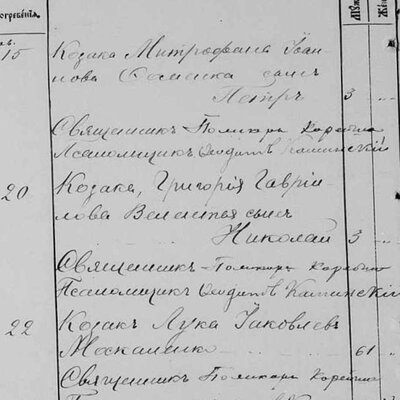 погребенія.
Муж
15
Козака Митрофана Іоан
нова Семенка сынъ
Петръ 3
Священникъ Поликарпъ
Псаломщикъ Феодотъ Каминскій
20
Козака, Григорія Гаврі
илова сынъ
Николай 3
Священникъ Поликарпъ
Псаломщикъ Феодотъ Каминскій
22
Козакъ Лука Іаковлевъ
Москаленко 61
Священникъ Поликарпъ